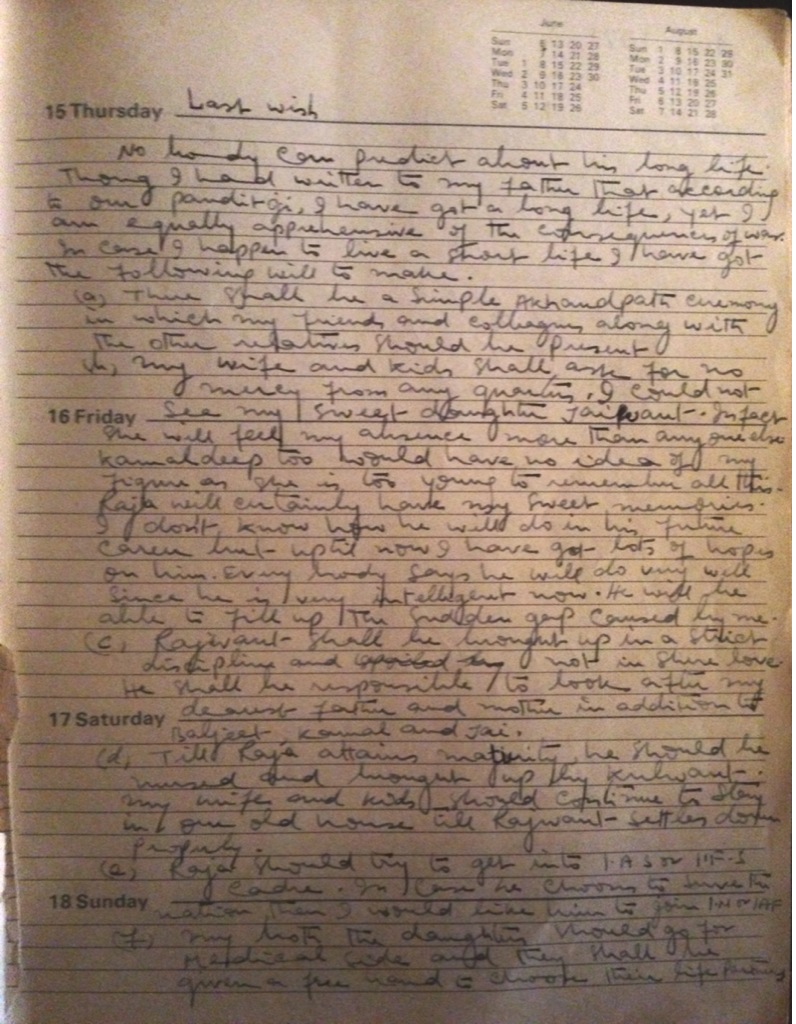 June
August
Sun 6 13 20 27
Mon 7 14 21 28
Tue 1 8 15 22 29
Wed 2 9 16 23 30
Thu 3 10 17 24
Fri 4 11 18 25
Sat 5 12 19 26
Sun 1 8 15 22 29
Mon 2 9 16 23 30
Tue 3 10 17 24 31
Wed 4 11 18 25
Thu 5 12 19 26
Fri 6 13 20 27
Sat 7 14 21 28
15 Thursday Last wish
No body can predict about his long life.
Thoug I had written to my father that according
to our panditji, I have got a long life, yet I
am equally apprehensive of the consequences of war.
In case I happen to live a short life I have got
the following will to make.
(a) There shall be a simple Akhandpath ceremony
in which my friends and colleagues along with
the other relatives should be present
(b) my wife and kids shall ask for no
mercy from any quarters. I could not
16 Friday see my sweet daughter Jaiwant. In fact
she will feel my absence more than any one else
Kamaldeep too would have no idea of my
figure as she is too young to remember all this.
Raja will certainly have my sweet memories.
I don't know how he will do in his future
career but uptil now I have got lots of hopes
on him. Every body says he will do very well
since he is very intelligent now. He will be
able to fill up the sudden gap caused by me.
(c) Rajwant shall be brought up in a strict
discipline and not in love.
He shall be responsible to look after my
17 Saturday dearest father and mother in addition to
Baljeet, Kamal and Jai.
(d) Till Raja attains maturity, he should be
nursed and brought up by Kulwant.
my wife and kids should continue to stay
in our old house till Rajwant settles down
properly.
(e) Raja should try to get into I.A.S or I.F.S
18 Sunday Cadre. In case he chooses to serve the
nation, then I would like him to join I.N or IAF
(f) my both the daughters should go for
Medical side and they shall be
given a free hand to choose their life partners